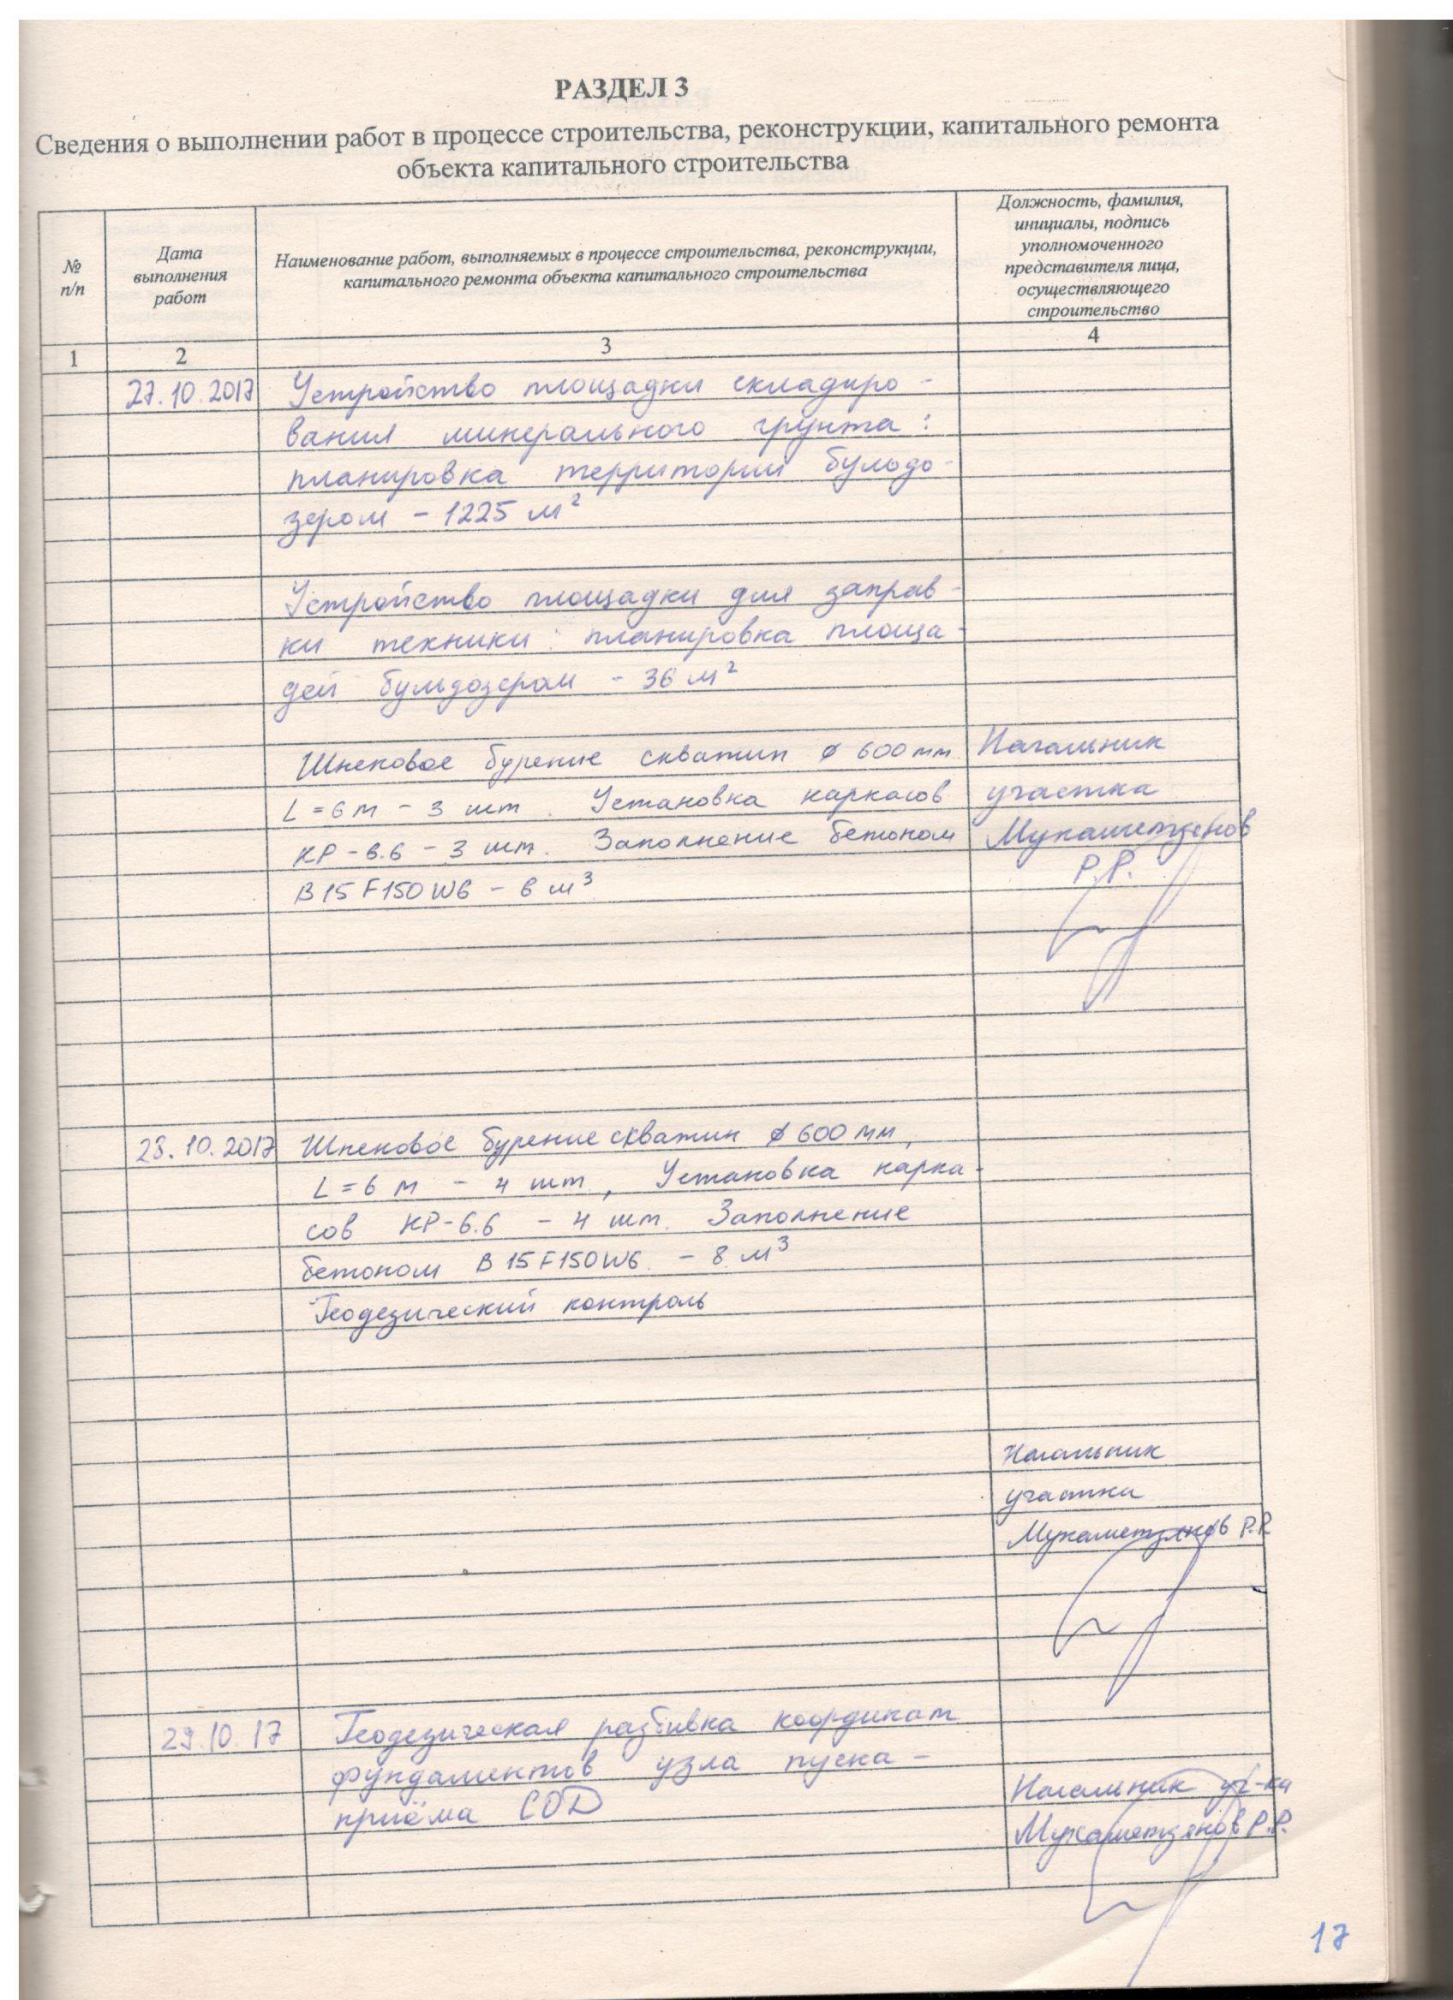 РАЗДЕЛ 3
Сведения о выполнении работ в процессе строительства, реконструкции, капитального ремонта
объекта капитального строительства
№
п/п
Дата
выполнения
работ
Наименование работ, выполняемых в процессе строительства, реконструкции,
капитального ремонта объекта капитального строительства
Должность, фамилия,
инициалы, подпись
уполномоченного
представителя лица,
осуществляющего
строительство
1 2 3 4
27.10.2017 Устройство площадки складиро-
вания минерального грунта:
планировка территории бульдо-
зером - 1225 м²
Устройство площадки для заправ-
ки техники: планировка площа-
дей бульдозером - 36 м²
Шнековое бурение скважин ø 600 мм Начальник
L=6м - 3 шт. Установка каркасов участка
КР-6.6 - 3 шт. Заполнение бетоном Мухаметзянов
В15 F150 W6 - 6 м³ Р.Р.
28.10.2017 Шнековое бурение скважин ø 600 мм,
L=6 м - 4 шт, Установка карка-
сов КР-6.6 - 4 шт. Заполнение
бетоном В 15 F150 W6 - 8 м³
Геодезический контроль
Начальник
участка
Мухаметзянов Р.Р.
29.10.17 Геодезическая разбивка координат
фундаментов узла пуска-
приёма СОД
Начальник уч-ка
Мухаметзянов Р.Р.
17